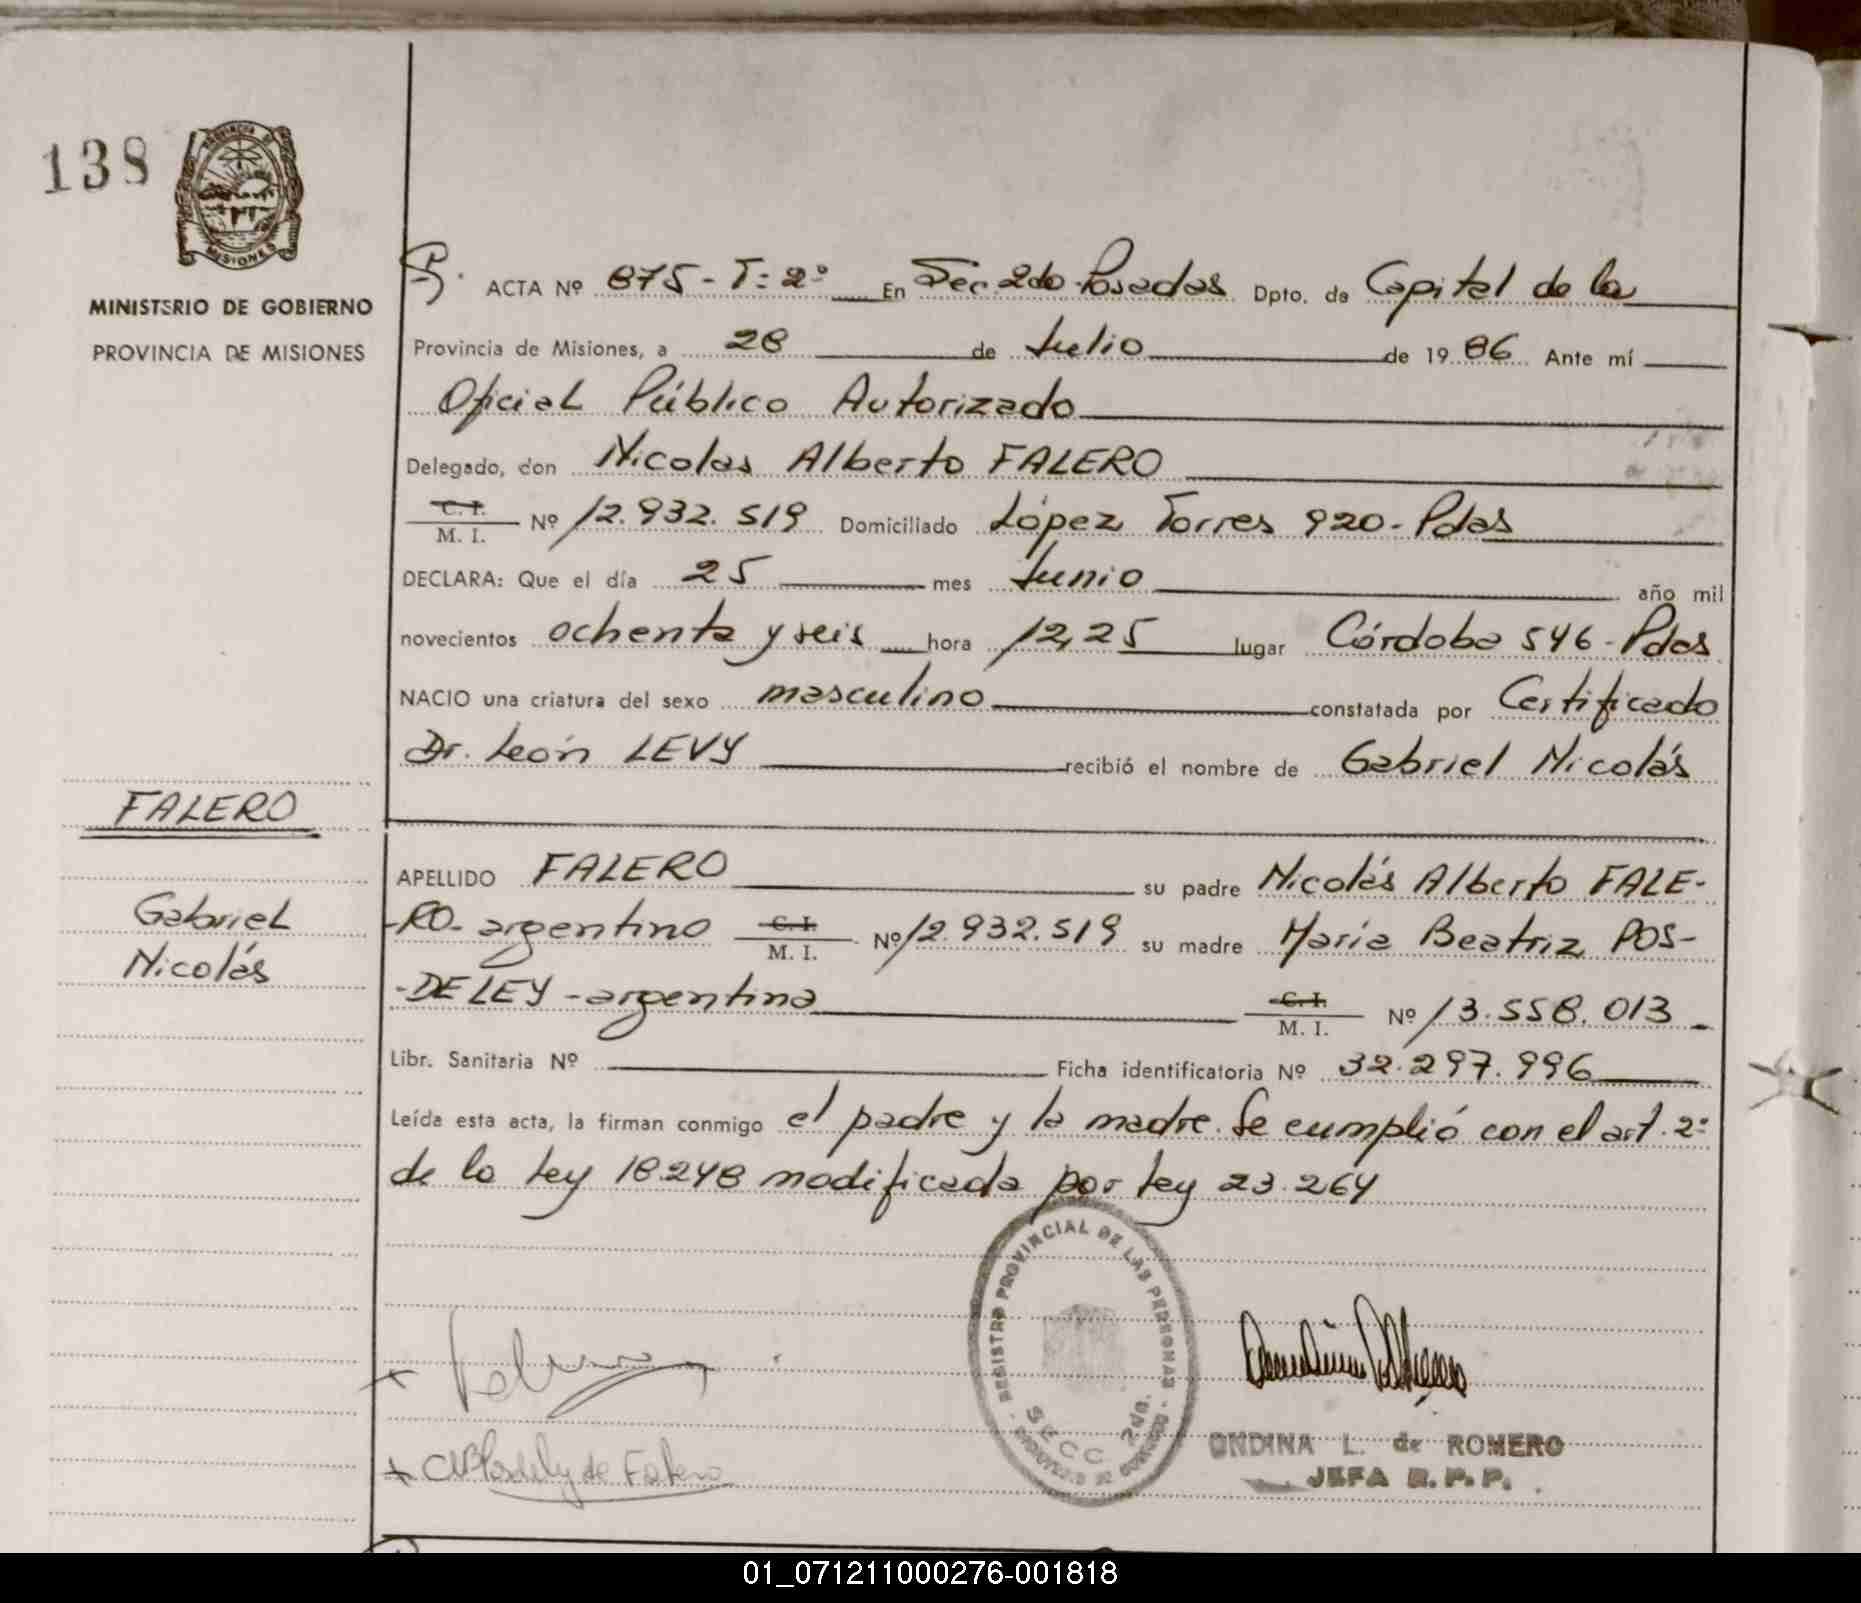 138
PROVINCIA DE
MISIONES
MINISTERIO DE GOBIERNO
PROVINCIA DE MISIONES
ACTA Nº 875 - T: 2º En Sec. 2da Posadas Dpto. de Capital de la
Provincia de Misiones, a 28 de Julio de 1986 Ante mí
Oficial Público Autorizado
Delegado, don Nicolas Alberto FALERO
C.I.
M. I. Nº 12.932.519 Domiciliado López Torres 920 - Pdas
DECLARA: Que el día 25 mes Junio año mil
novecientos ochenta y seis hora 12,25 lugar Córdoba 546 - Pdas
NACIO una criatura del sexo masculino constatada por Certificado
Dr. León LEVY recibió el nombre de Gabriel Nicolás
FALERO
Gabriel
Nicolás
APELLIDO FALERO su padre Nicolás Alberto FALE-
-RO - argentino C.I. M. I. Nº 12.932.519 su madre María Beatriz POS-
-DELEY - argentina C.I. M. I. Nº 13.558.013
Libr. Sanitaria Nº Ficha identificatoria Nº 32.297.996
Leída esta acta, la firman conmigo el padre y la madre. Se cumplió con el art. 2º
de la Ley 18.248 modificada por Ley 23.264
REGISTRO PROVINCIAL DE LAS PERSONAS
SECC. 2da.
de Falero
ONDINA L. de ROMERO
JEFA R. P. P.
01_071211000276-001818